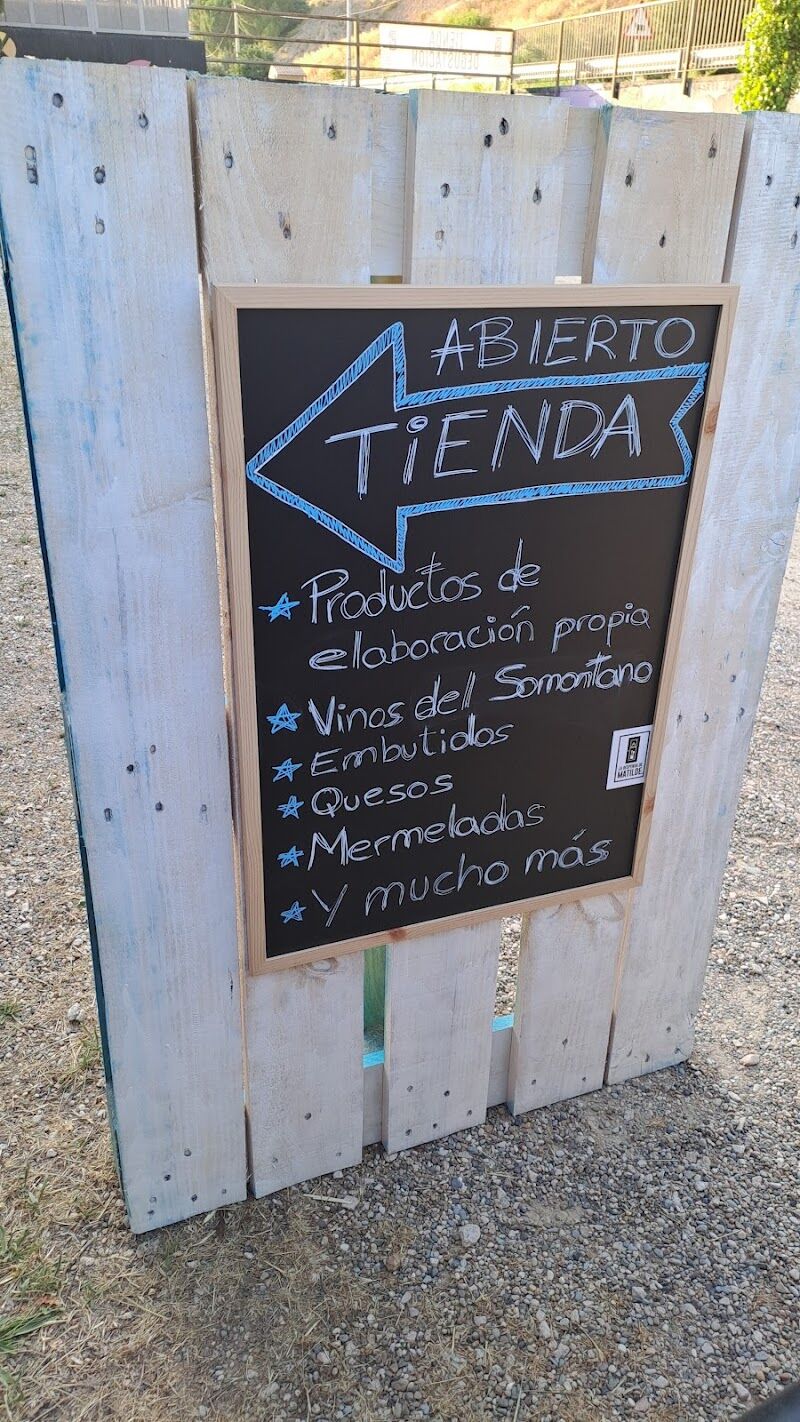 TIENDA
DEGUSTACIÓN
ABIERTO
TiENDA
Productos de
elaboración propia
Vinos del Somontano
Embutidos
Quesos
Mermeladas
Y mucho más
LA DESPENSA DE
MATILDE